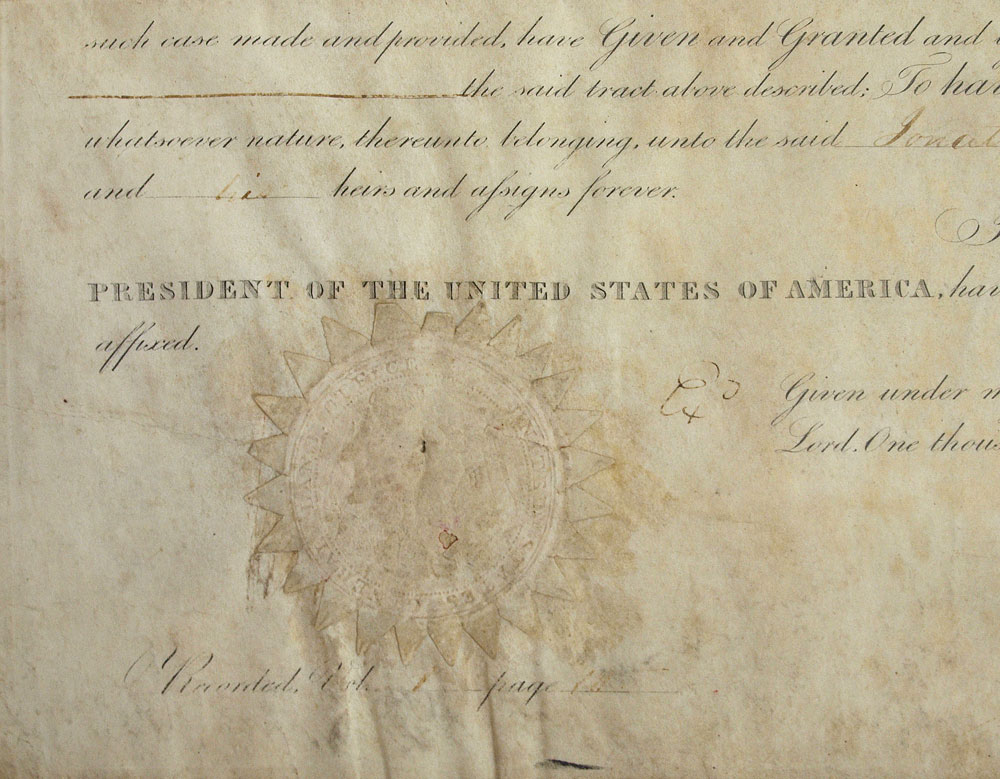 such case made and provided, have Given and Granted and
the said tract above described: To
whatsoever nature, thereunto belonging, unto the said
and his heirs and assigns forever.
PRESIDENT OF THE UNITED STATES OF AMERICA,
affixed.
Given under
Lord, One
Recorded, Vol. page